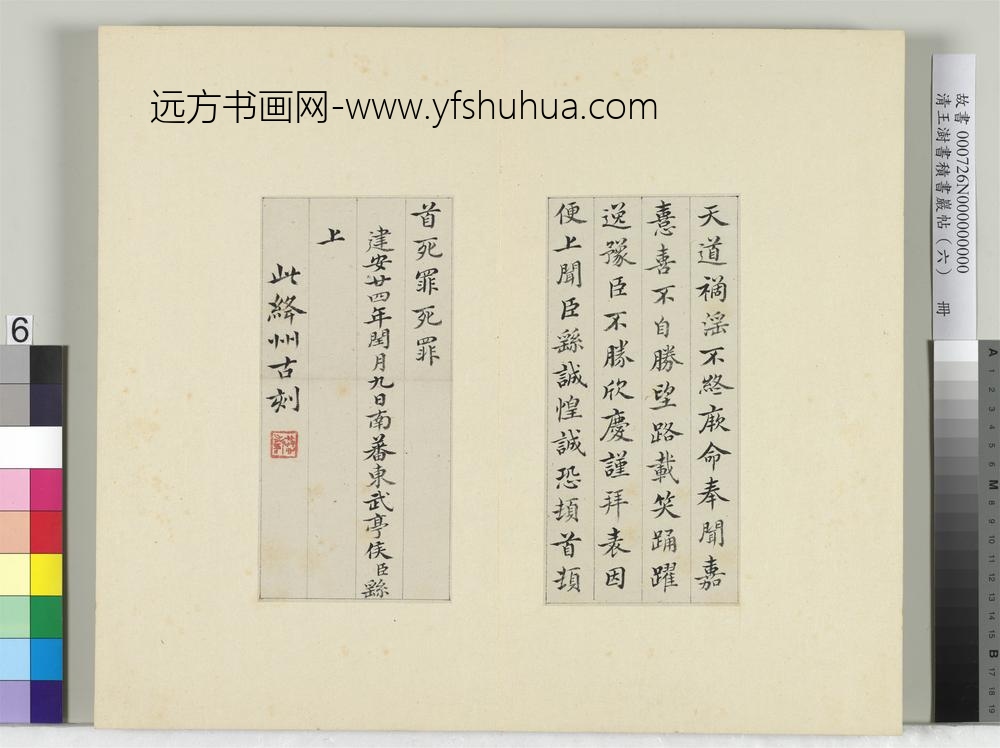 远方书画网-www.yfshuhua.com
天道禍淫不終厥命奉聞嘉
憙喜不自勝望路載笑踊躍
逸豫臣不勝欣慶謹拜表因
便上聞臣繇誠惶誠恐頓首頓
首死罪死罪
建安廿四年閏月九日南蕃東武亭侯臣繇
上
此絳州古刻
故書 000726N000000000
清王澍書積書巖帖（六） 冊
6
A 1 2 3 4 5 6 M 8 9 10 11 12 13 14 15 B 17 18 19